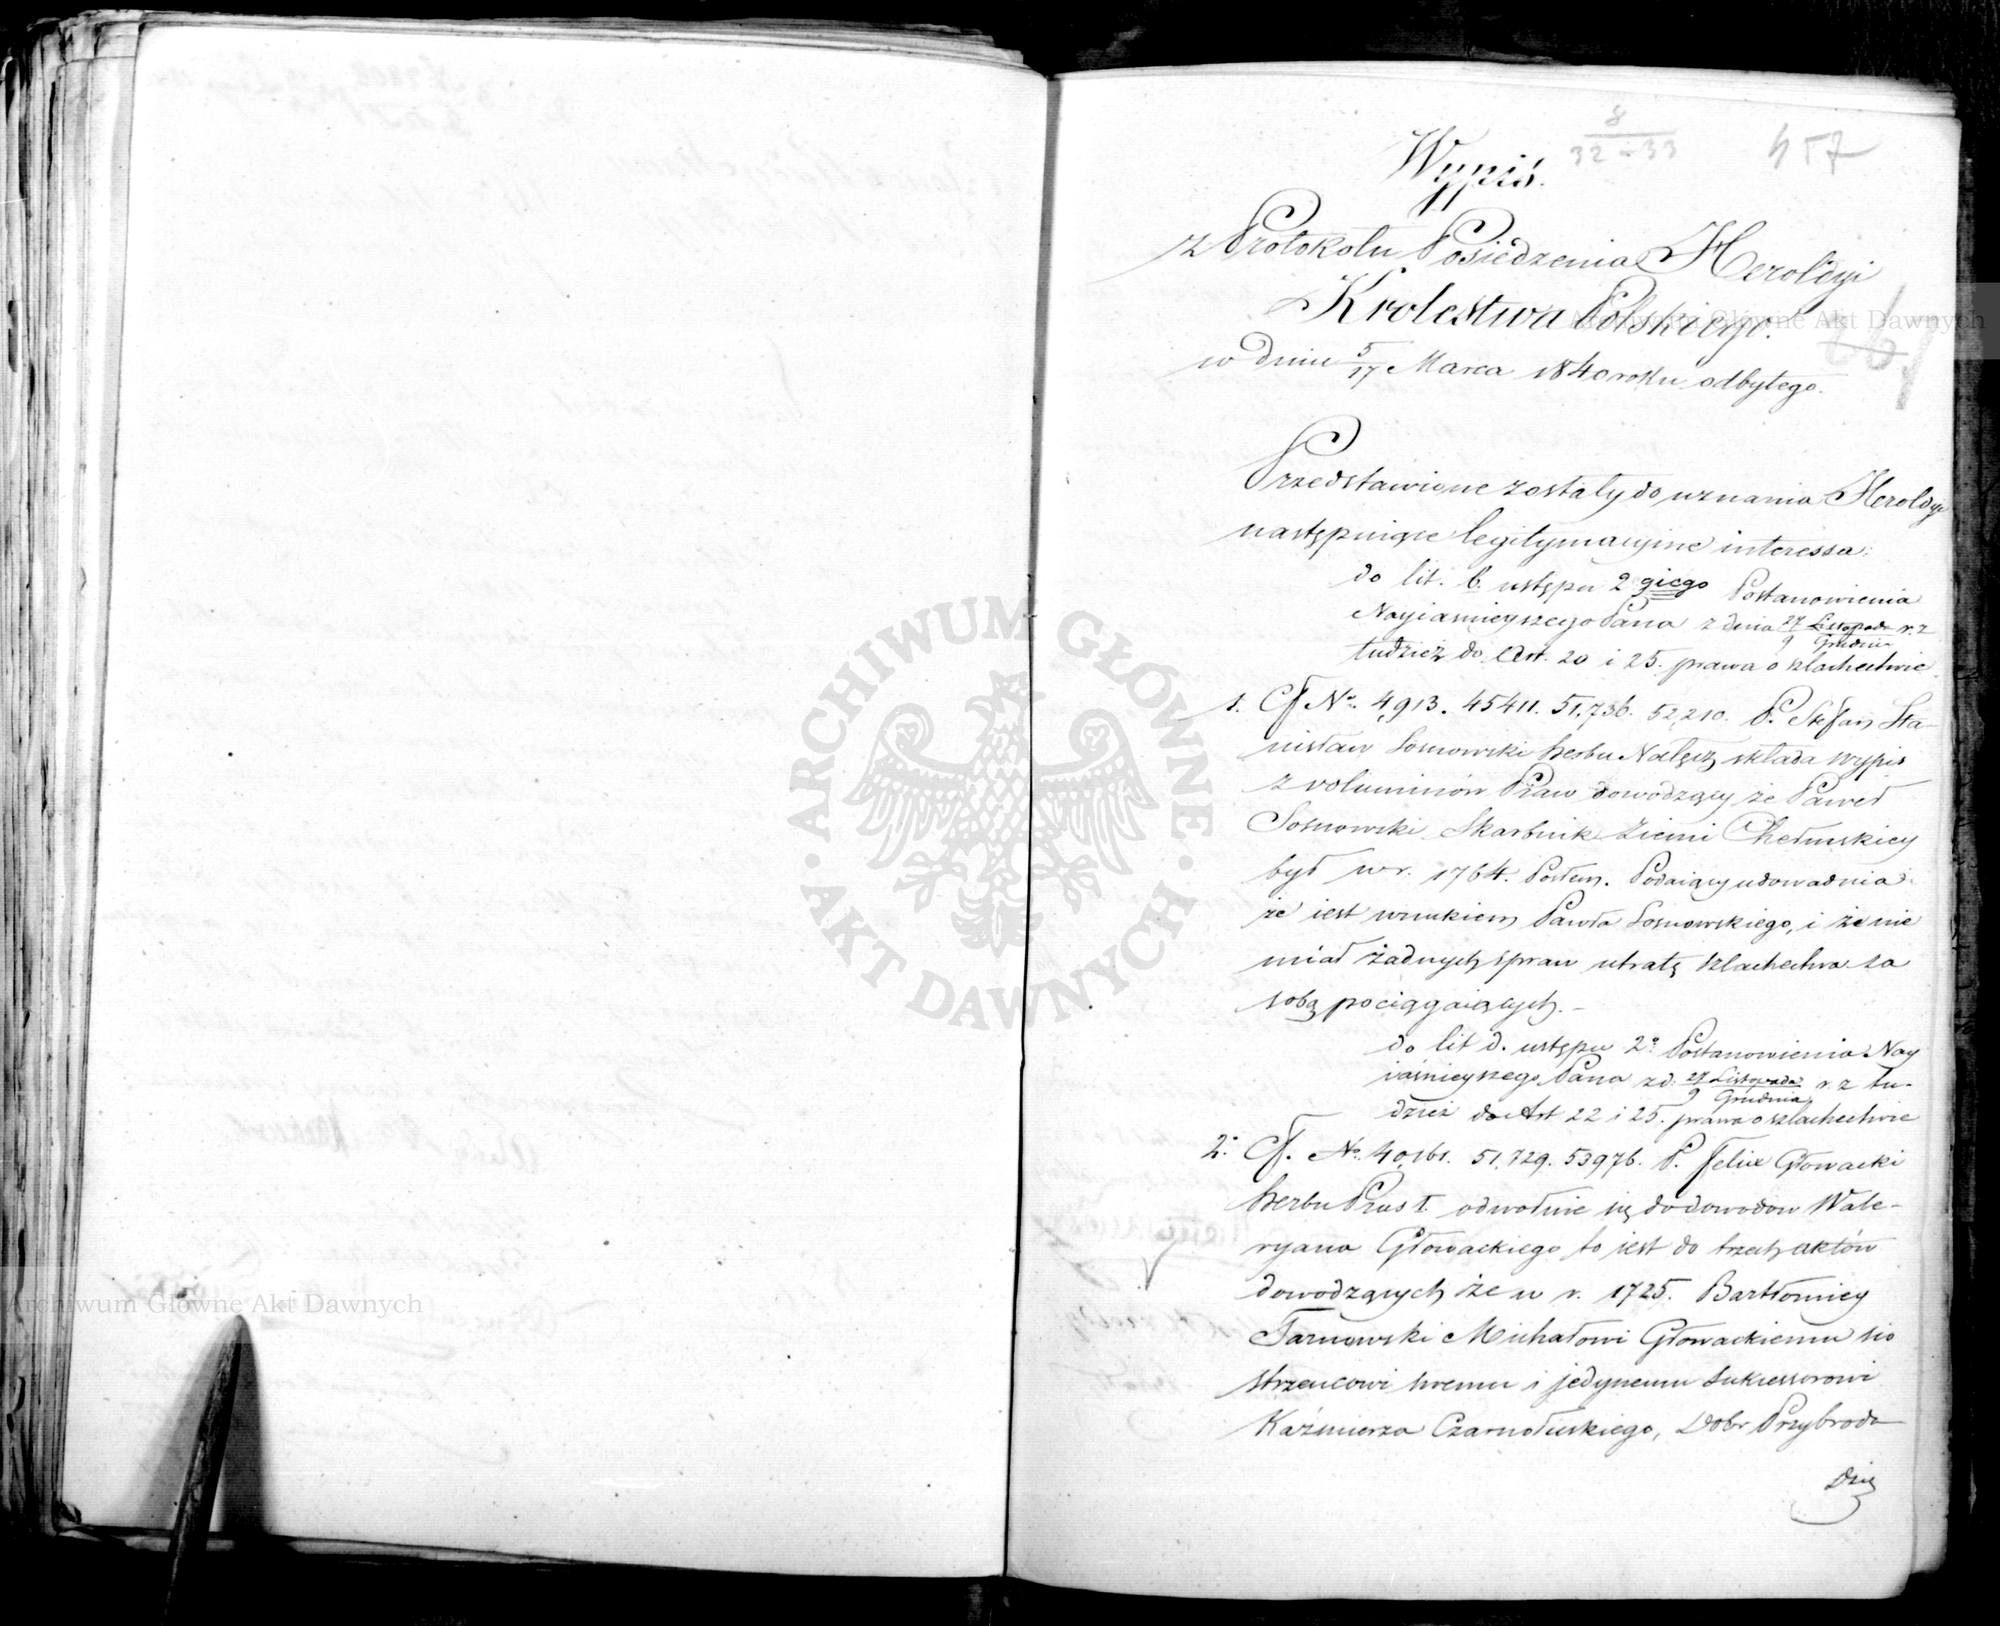 8
32-33
457
Wypis
z Protokołu Posiedzenia Heroldyi
Krolestwa Polskiego.
w dniu 5/17 Marca 1840 roku odbytego.
Przedstawione zostały do uznania Heroldyi
następuiące legitymacyjne interessa:
do lit. b. ustępu 2giego Postanowienia
Nayiaśnieyszego Pana z dnia 27 Listopada / 9 Grudnia r. z
tudzież do Art. 20 i 25. prawa o szlachectwie.
1. N° 4,913. 45411. 51,736. 52,210. P. Stefan Sta-
nisław Sosnowski herbu Nałęcz składa wypis
z voluminów Praw dowodzący że Paweł
Sosnowski Skarbnik Ziemi Chełmskiey
był w r. 1764. Posłem. Podaiący udowadnia
że iest wnukiem Pawła Sosnowskiego, i że nie
miał żadnych spraw utratę szlachectwa za
sobą pociągaiących. –
do lit d. ustępu 2° Postanowienia Nay
iaśnieyszego Pana z d. 27 Listopada / 9 Grudnia r. z tu-
dzież do Art 22 i 25. prawa o szlachectwie
2. N° 40,161. 51,729. 53976. P. Felix Głowacki
herbu Prus I. odwołuie się do dowodow Wale-
ryana Głowackiego to iest do trzech aktów
dowodzących że w r. 1725. Bartłomiey
Tarnowski Michałowi Głowackiemu sio
strzeńcowi swemu i jedynemu Sukcessorowi
Kaźmierza Czarnołuskiego, Dobr Przybroda
Archiwum Główne Akt Dawnych
Archiwum Główne Akt Dawnych
ARCHIWUM GŁÓWNE AKT DAWNYCH